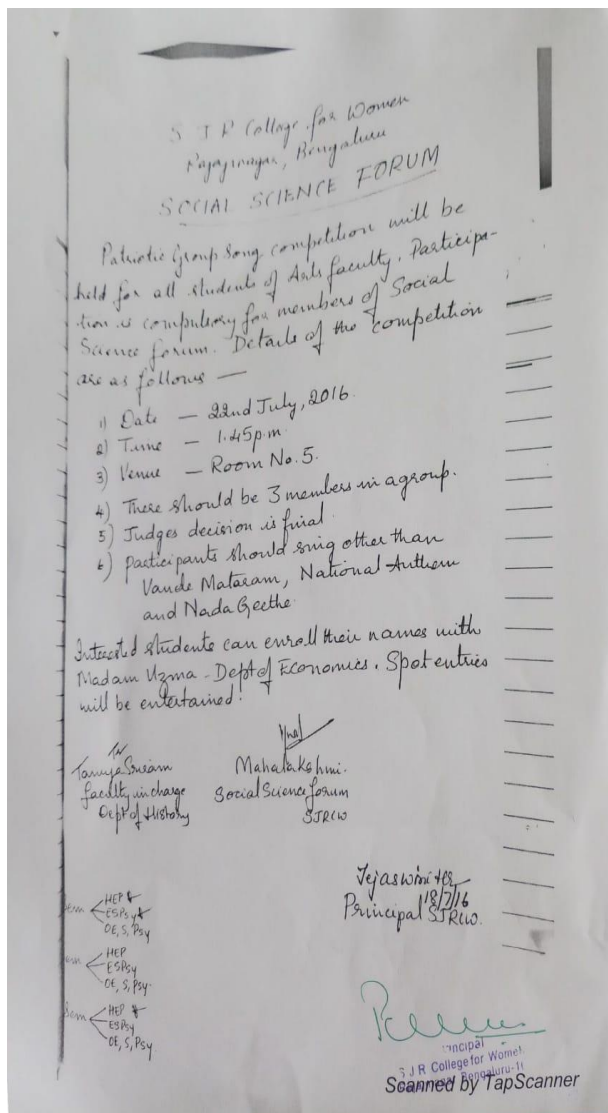 S J R College for Women
Rajajinagar, Bengaluru
SOCIAL SCIENCE FORUM
Patriotic Group Song competition will be
held for all students of Arts faculty. Participa-
tion is compulsory for members of Social
Science forum. Details of the competition
are as follows —
1) Date — 22nd July, 2016.
2) Time — 1.45 p.m.
3) Venue — Room No. 5.
4) There should be 3 members in a group.
5) Judges decision is final.
6) participants should sing other than
Vande Mataram, National Anthem
and Nada Geethe.
Interested students can enroll their names with
Madam Uzma - Dept of Economics. Spot entries
will be entertained.
Tanuja Sriram
faculty in charge
Dept of History
Mahalakshmi.
Social Science forum
SJRCW
Tejaswini
18/7/16
Principal SJRCW.
HEP
ESPsy
OE, S, Psy
HEP
ESPsy
OE, S, Psy.
Sem
HEP
ESPsy
OE, S, Psy.
S J R College for Women
Bengaluru-
Scanned by TapScanner